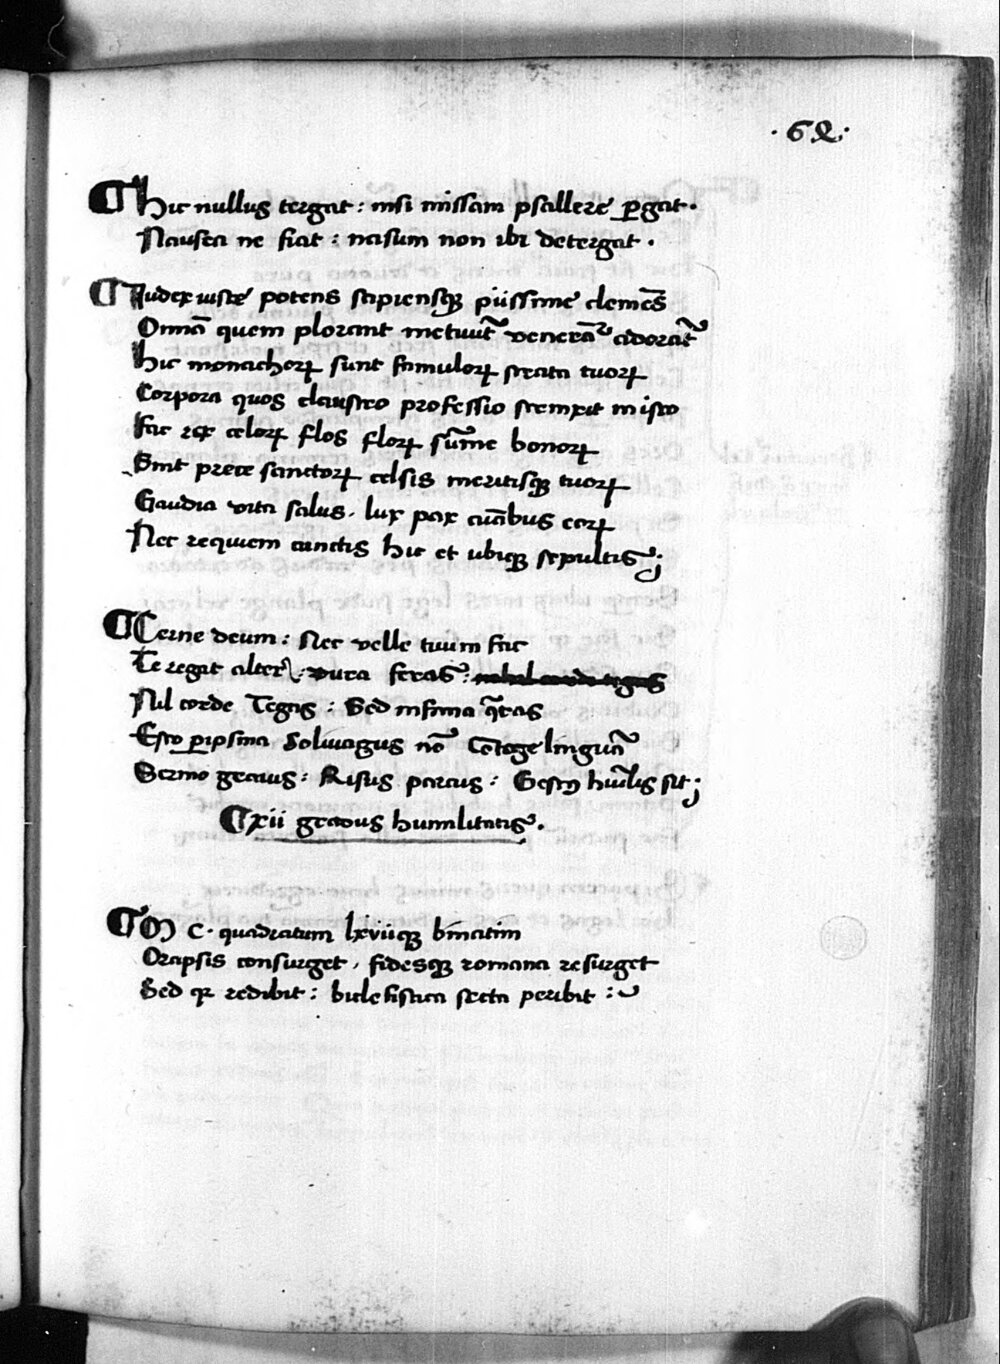 ·62·
¶ Hic nullus tergat : nisi missam psallere ꝑgat·
Nausea ne fiat : nasum non ibi detergat ·
¶ Iudex iuste potens sapiensqꝫ piissime clemēs
Omnia quem plorant metuūt venerāt adorāt
Hic monachoꝝ sunt famuloꝝ strata tuoꝝ
Corpora quos claustro professio mixto
Fac rex celoꝝ flos floꝝ sūme bonoꝝ
Sint prece sanctoꝝ celsis meritisqꝫ tuoꝝ
Gaudia vita salus, lux pax cūbus eoꝝ
Nec requiem cunctis hic et ubiqꝫ sepultis;
¶ Cerne deum : Nec velle tuum fac
Te regat alter : dura feras :
Nil corde Tegas : Sed infima q̄ras
Esto ꝑipsima Solivagus nō Cōtege linguā
Sermo gravis : Risus parcus : Gestꝯ hūilis sit;
¶ xii gradus humilitatis·
¶ M C· quadratum lxviiqꝫ binatim
Orapsis consurget, fidesqꝫ romana resurget
Sed qr redibit : biclefistica secta peribit :